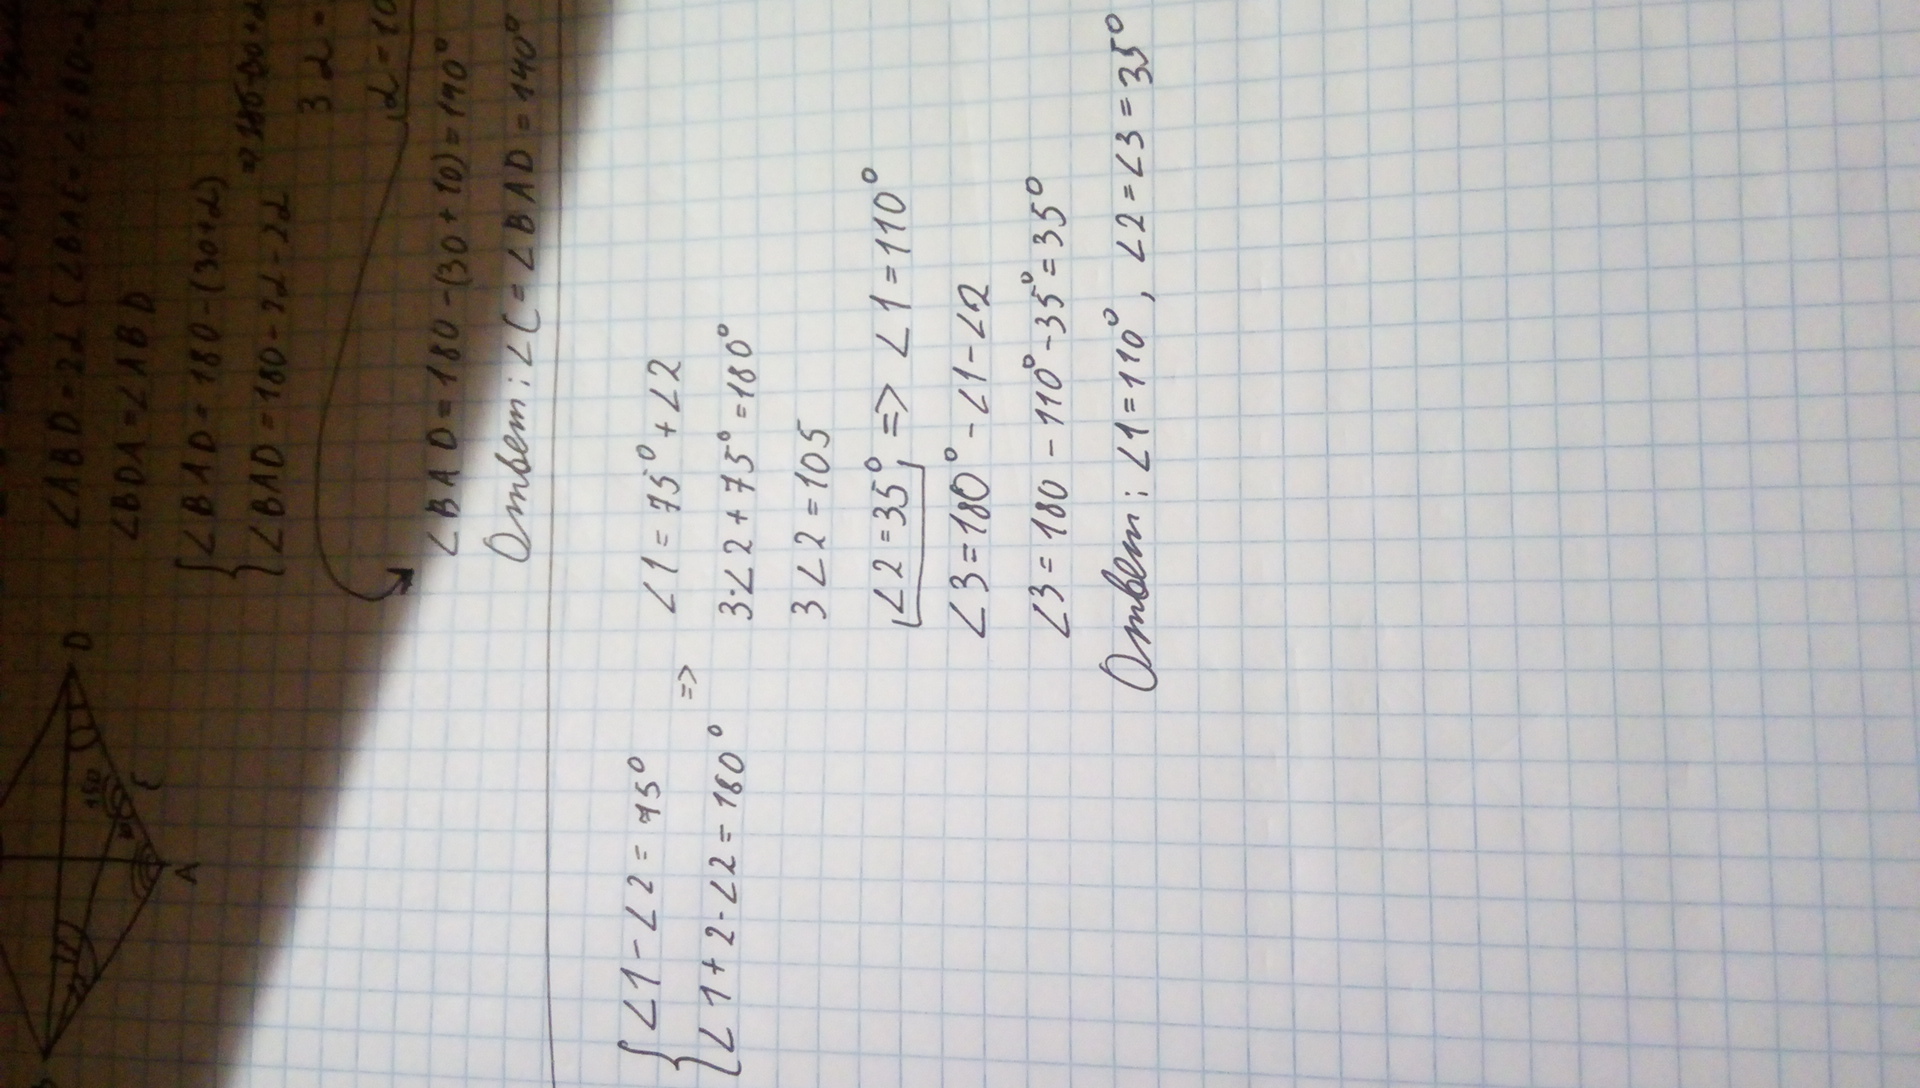 ∠ABD = 2α (∠BAE =
∠BDA = ∠ABD
{∠BAD = 180 - (30+α)
{∠BAD = 180 - 2α - 2α
3α =
α = 10
∠BAD = 180 - (30 + 10) = 140°
Ответ: ∠C = ∠BAD = 140°
D
150
E
A
{∠1 - ∠2 = 75°
{∠1 + 2·∠2 = 180°
=>
∠1 = 75° + ∠2
3·∠2 + 75° = 180°
3∠2 = 105
∠2 = 35° => ∠1 = 110°
∠3 = 180° - ∠1 - ∠2
∠3 = 180 - 110° - 35° = 35°
Ответ: ∠1 = 110°, ∠2 = ∠3 = 35°